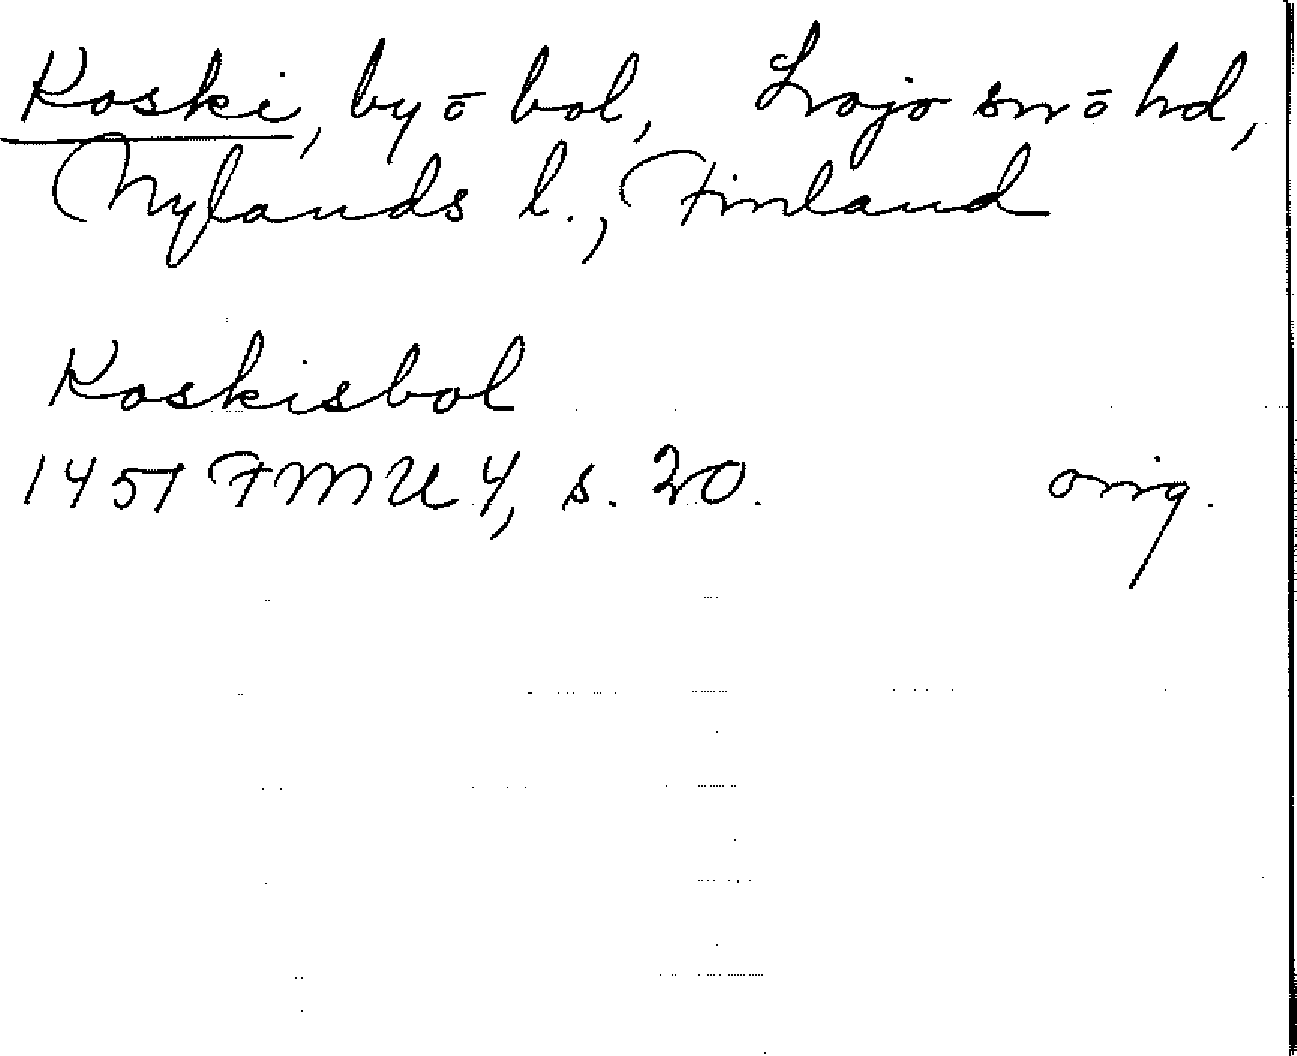 Koski, by o bol, Lojo sn o hd,
Nylands l., Finland
Koskisbol
1451 FMU 4, s. 20. orig.